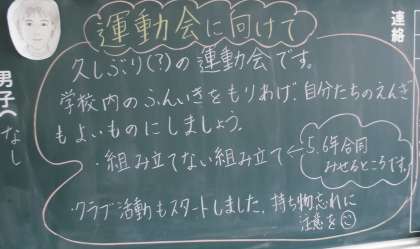 運動会に向けて
久しぶり(?)の運動会です。
学校内のふんいきをもりあげ、自分たちのえんぎ
もよいものにしましょう。
・組み立てない組み立て←5,6年合同
みせるところです。
・クラブ活動もスタートしました。持ち物忘れに
注意を
連絡
男子へ
なし